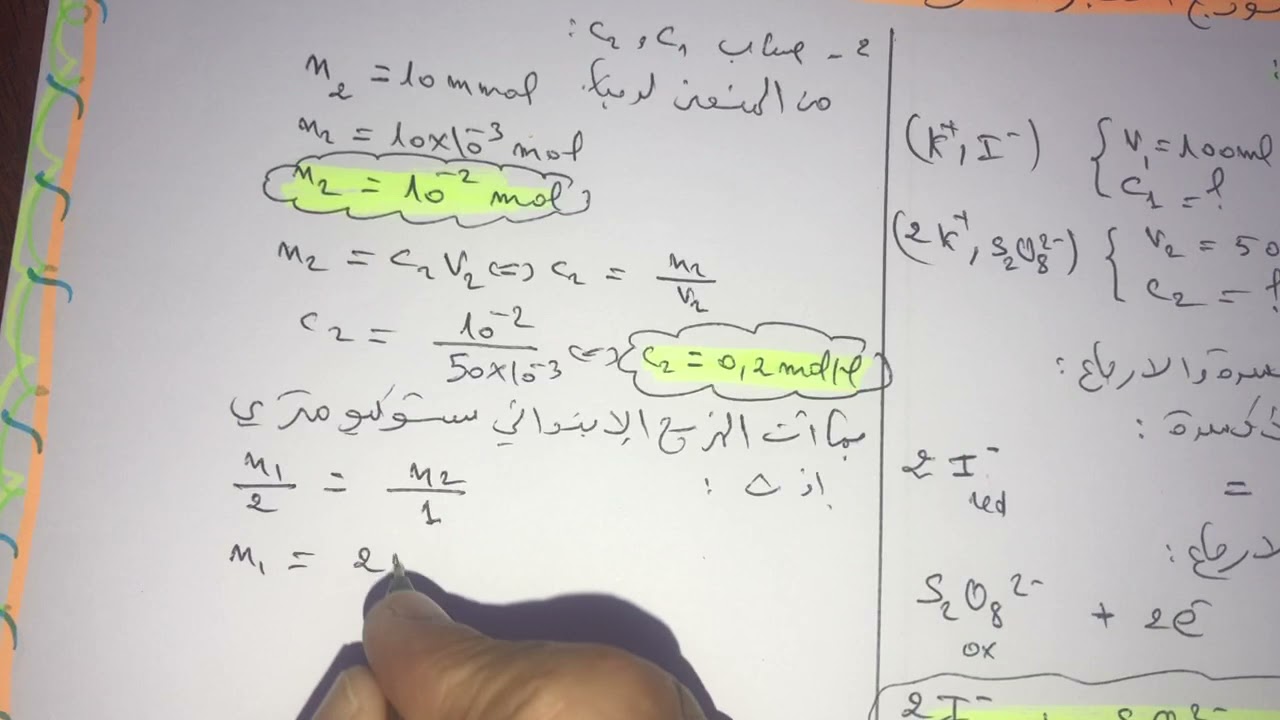 2 - حساب c₁ و c₂ :
من المنحنى لدينا
n₂ = 10 mmol
n₂ = 10×10⁻³ mol
n₂ = 10⁻² mol
n₂ = c₂ V₂ <=> c₂ = n₂/V₂
c₂ = 10⁻²/50×10⁻³ <=> c₂ = 0,2 mol/l
بما أن المزج الإبتدائي ستوكيو متري
إذن :
n₁/2 = n₂/1
n₁ = 2
(K⁺, I⁻) { V₁ = 100ml
c₁ = ?
(2K⁺, S₂O₈²⁻) { V₂ = 50
c₂ = ?
والارجاع :
2 I⁻ =
red
S₂O₈²⁻ + 2e⁻
ox
2 I⁻